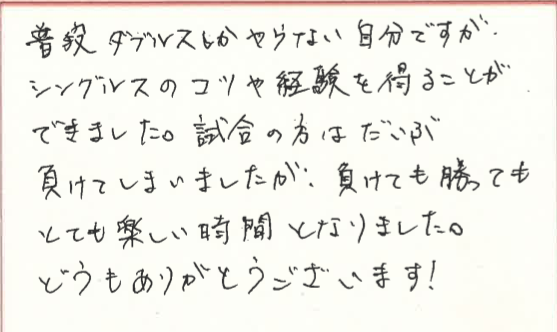 普段ダブルスしかやらない自分ですが、
シングルスのコツや経験を得ることが
できました。試合の方はだいぶ
負けてしまいましたが、負けても勝っても
とても楽しい時間となりました。
どうもありがとうございます!